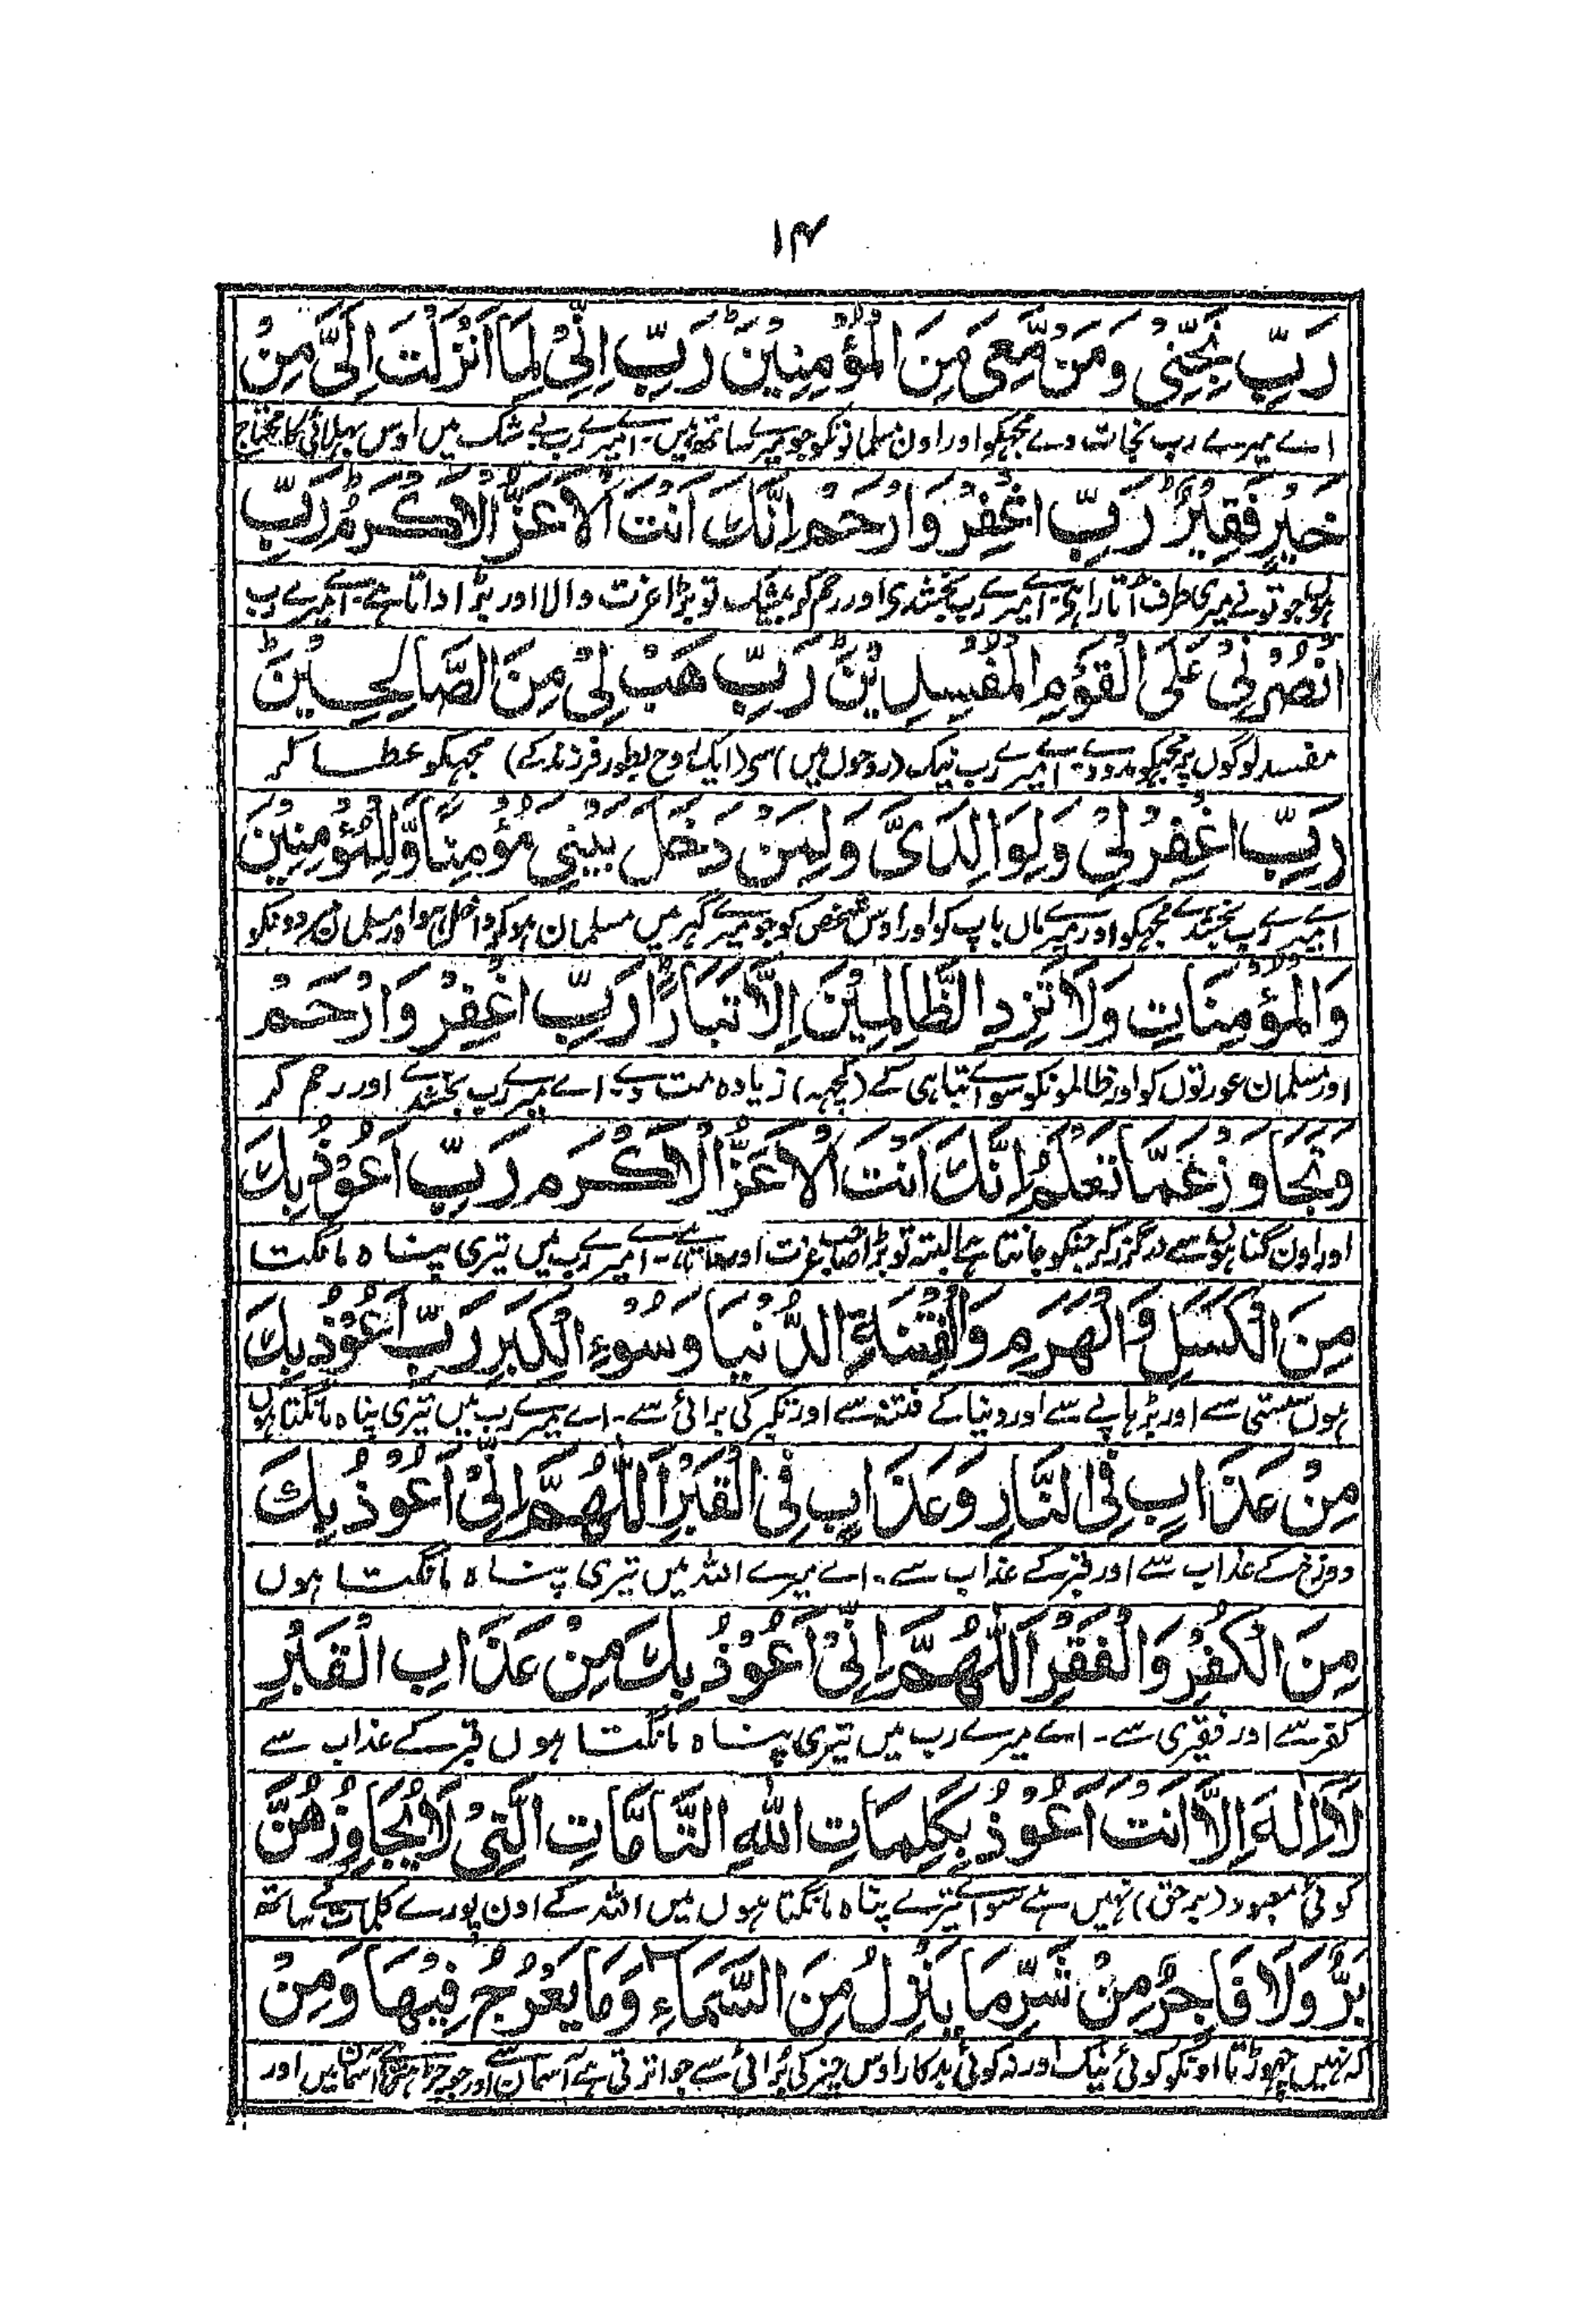 ۱۴
رَبِّ نَجِّنِیْ وَمَنْ مَّعِیَ مِنَ الْمُؤْمِنِیْنَ رَبِّ اِنِّیْ لِمَا اَنْزَلْتَ اِلَیَّ مِنْ
اے میرے رب نجات دے مجہکو اور اون مسلمانونکو جو میرے ساتھ ہیں۔ اے میرے رب بے شک میں اوس بہلائی کا محتاج
خَیْرٍ فَقِیْرٌ رَبِّ اغْفِرْ وَارْحَمْ اِنَّكَ اَنْتَ الْاَعَزُّ الْاَكْرَمُ رَبِّ
ہوں جو تونے میری طرف اتارا ہی۔ اے میرے رب بخشدی اور رحم کر بیشک تو بڑا عزت والا اور بڑا داتا ہے۔ اے میرے رب
انْصُرْنِیْ عَلَی الْقَوْمِ الْمُفْسِدِیْنَ رَبِّ هَبْ لِیْ مِنَ الصَّالِحِیْنَ
مفسد لوگوں پر مجہکو مدد دے۔ اے میرے رب نیک (روحوں میں) سی (ایک روح بطور فرزند کے) مجہکو عطا کر
رَبِّ اغْفِرْ لِیْ وَلِوَالِدَیَّ وَلِمَنْ دَخَلَ بَیْتِیَ مُؤْمِنًا وَّلِلْمُؤْمِنِیْنَ
اے میرے رب بخشدے مجہکو اور میرے ماں باپ کو اور اوس شخص کو جو میرے گہر میں مسلمان ہوکر داخل ہوا اور مسلمان مردونکو
وَالْمُؤْمِنَاتِ وَلَا تَزِدِ الظَّالِمِیْنَ اِلَّا تَبَارًا رَبِّ اغْفِرْ وَارْحَمْ
اور مسلمان عورتوں کو اور ظالمونکو سوائے تباہی کے (کچہہ) زیادہ مت دے۔ اے میرے رب بخشدے اور رحم کر
وَتَجَاوَزْ عَمَّا تَعْلَمُ اِنَّكَ اَنْتَ الْاَعَزُّ الْاَكْرَمُ رَبِّ اَعُوْذُ بِكَ
اور اون گناہوں سے درگزر کر جنکو جانتا ہے البتہ تو بڑا صاحب عزت اور داتا ہے۔ اے میرے رب میں تیری پناہ مانگتا
مِنَ الْكَسَلِ وَالْهَرَمِ وَالْفِتْنَةِ الدُّنْیَا وَسُوْءِ الْكِبَرِ رَبِّ اَعُوْذُ بِكَ
ہوں سستی سے اور بڑہاپے سے اور دنیا کے فتنہ سے اور تکبر کی برائی سے۔ اے میرے رب میں تیری پناہ مانگتا ہوں
مِنْ عَذَابٍ فِی النَّارِ وَعَذَابٍ فِی الْقَبْرِ اَللّٰهُمَّ اِنِّیْ اَعُوْذُ بِكَ
دوزخ کے عذاب سے اور قبر کے عذاب سے۔ اے میرے اللہ میں تیری پناہ مانگتا ہوں
مِنَ الْكُفْرِ وَالْفَقْرِ اَللّٰهُمَّ اِنِّیْ اَعُوْذُ بِكَ مِنْ عَذَابِ الْقَبْرِ
کفر سے اور فقیری سے۔ اے میرے رب میں تیری پناہ مانگتا ہوں قبر کے عذاب سے
لَا اِلٰهَ اِلَّا اَنْتَ اَعُوْذُ بِكَلِمَاتِ اللهِ التَّامَّاتِ الَّتِیْ لَا یُجَاوِزُهُنَّ
کوئی معبود (بر حق) نہیں ہے سوائے تیرے پناہ مانگتا ہوں میں اللہ کے اون پورے کلمات کے ساتھ
بَرٌّ وَّلَا فَاجِرٌ مِنْ شَرِّ مَا یَنْزِلُ مِنَ السَّمَاءِ وَمَا یَعْرُجُ فِیْهَا وَمِنْ
کہ نہیں چہوڑتا اونکو کوئی نیک اور نہ کوئی بدکار اوس چیز کی برائی سے جو اترتی ہے آسمان سے اور جو چڑہتی ہے آسمان میں اور